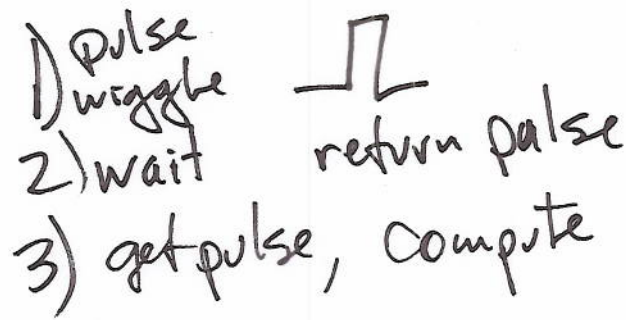 1) pulse
wiggle
2) wait return pulse
3) get pulse, compute